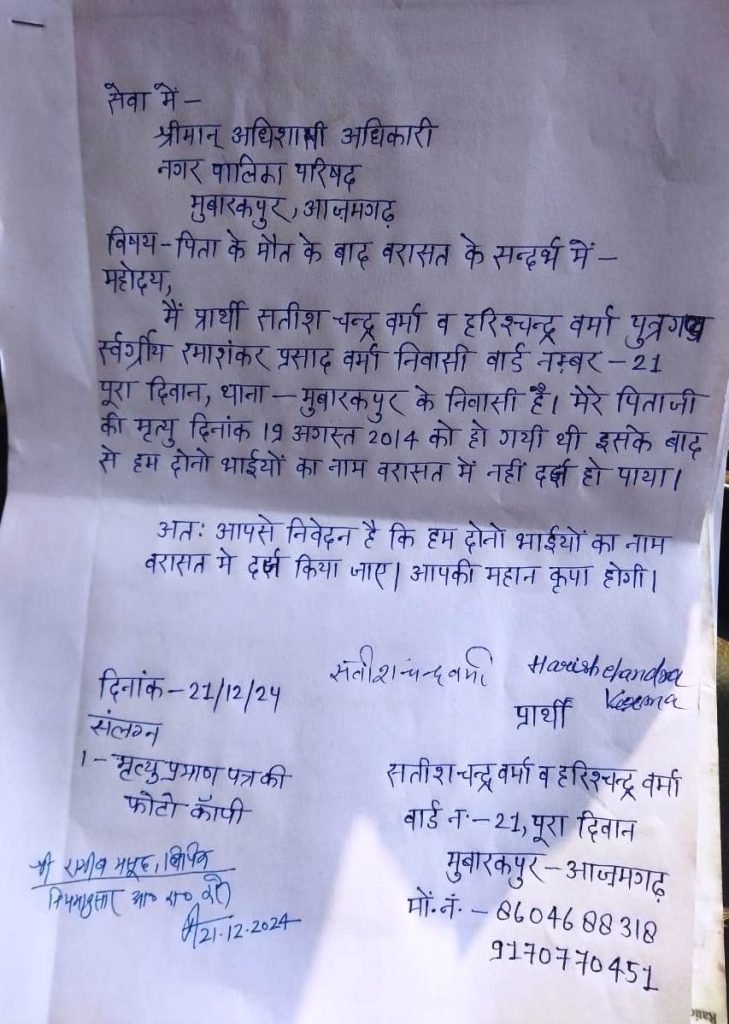 सेवा में -
श्रीमान् अधिशाषी अधिकारी
नगर पालिका परिषद
मुबारकपुर, आजमगढ़
विषय - पिता के मौत के बाद वरासत के सन्दर्भ में -
महोदय,
मैं प्रार्थी सतीश चन्द्र वर्मा व हरिश्चन्द्र वर्मा पुत्रगण
स्वर्गीय रमाशंकर प्रसाद वर्मा निवासी वार्ड नम्बर - 21
पूरा दिवान, थाना - मुबारकपुर के निवासी है। मेरे पिताजी
की मृत्यु दिनांक 19 अगस्त 2014 को हो गयी थी इसके बाद
से हम दोनो भाईयों का नाम वरासत में नहीं दर्ज हो पाया।
अतः आपसे निवेदन है कि हम दोनो भाईयों का नाम
वरासत मे दर्ज किया जाए। आपकी महान कृपा होगी।
सतीश चन्द्र वर्मा Harishchandra
Verma
दिनांक - 21/12/24
प्रार्थी
संलग्न
1 - मृत्यु प्रमाण पत्र की
फोटो कॉपी
सतीश चन्द्र वर्मा व हरिश्चन्द्र वर्मा
वार्ड न॰ - 21, पूरा दिवान
मुबारकपुर - आजमगढ़
मों. नं. - 8604688318
9170770451
श्री लिपिक
नियमानुसार
21.12.2024